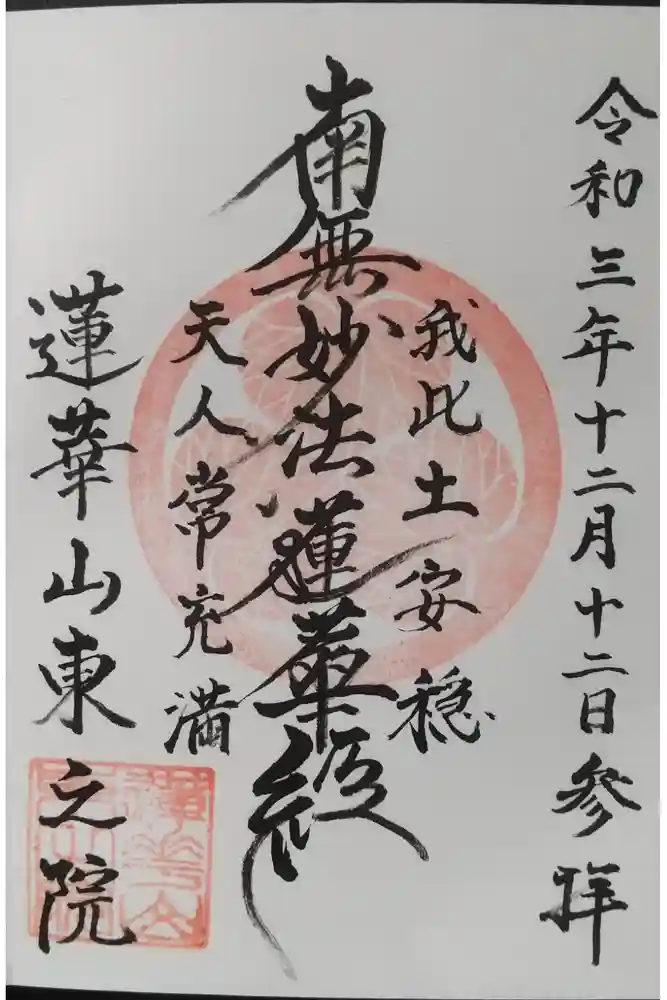 令和三年十二月十二日参拝
我此土安穏
南無妙法蓮華経
天人常充満
蓮華山東之院